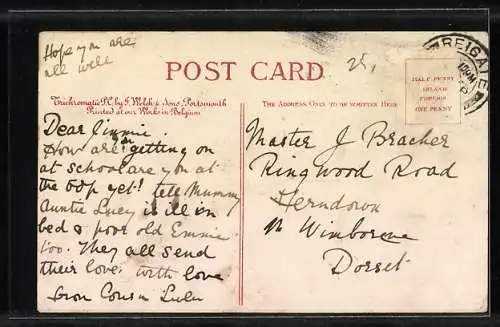 Hope you are
all well
POST CARD
Trichromatic P.C. by F. Welch & Sons, Portsmouth
Printed at our Works in Belgium
THE ADDRESS ONLY TO BE WRITTEN HERE
HALF PENNY
INLAND
FOREIGN
ONE PENNY
REIGATE
Dear Jimmie.
How are you getting on
at school are you at
the top yet! tell Mummy
Auntie Lucy is ill in
bed & poor old Emmie
too. They all send
their love. with love
from Cousin Lulu
Master J Bracher
Ringwood Road
Ferndown
Nr Wimborne
Dorset